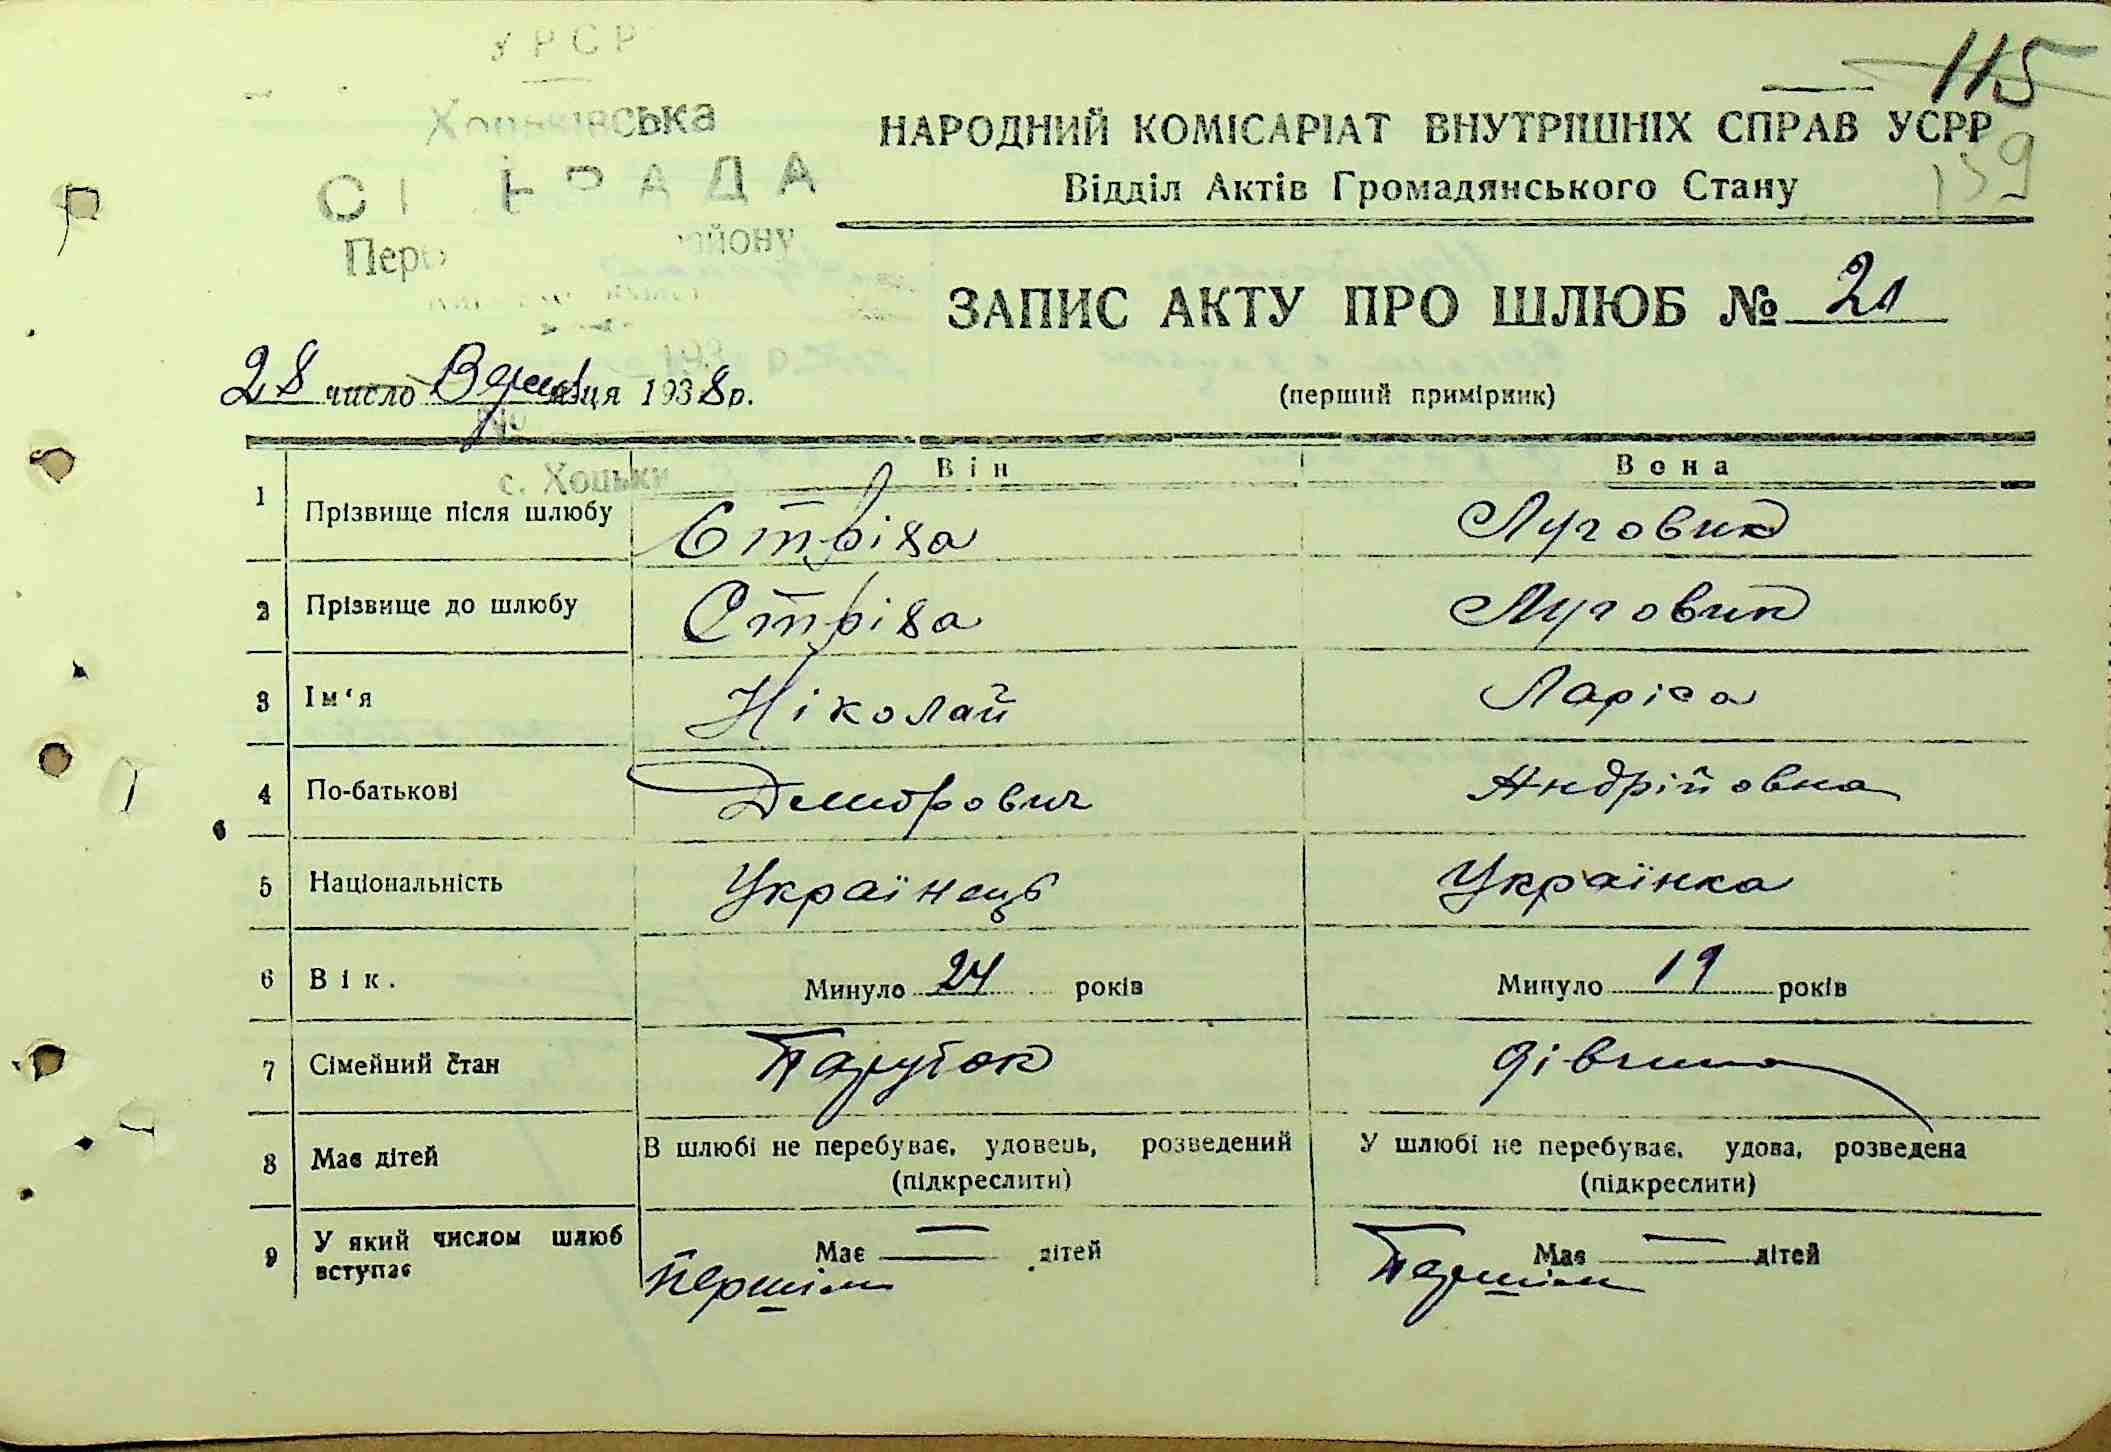 УРСР
Хоцьківська
СІЛЬРАДА
району
115
139
НАРОДНИЙ КОМІСАРІАТ ВНУТРІШНІХ СПРАВ УСРР
Відділ Актів Громадянського Стану
ЗАПИС АКТУ ПРО ШЛЮБ № 21
28 число Верес місяця 1938 р.
(перший примірник)
с. Хоцьки
Він Вона
1 Прізвище після шлюбу Стріха Луговик
2 Прізвище до шлюбу Стріха Луговик
3 Ім'я Ніколай Ларіса
4 По-батькові Дмитрович Андрійовна
5 Національність Українець Українка
6 Вік. Минуло 24 років Минуло 19 років
7 Сімейний стан Парубок дівчина
8 Має дітей В шлюбі не перебуває, удовець, розведений У шлюбі не перебуває, удова, розведена
(підкреслити) (підкреслити)
9 У який числом шлюб вступає Має — дітей Має — дітей
Першім Першім